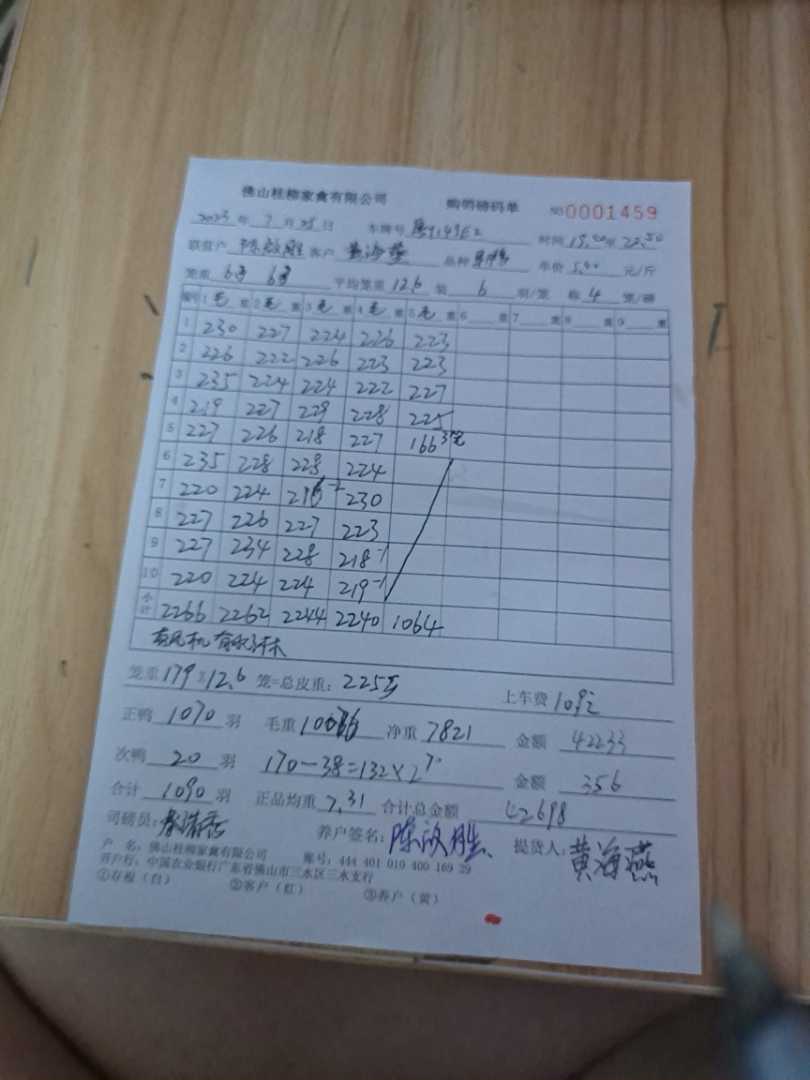 佛山桂柳家禽有限公司 购销磅码单 NO 0001459
2023年9月25日 车牌号 时间
联营户 客户 黄海燕 品种 单价 5.40 元/斤
笼重 6号 6号 平均笼重 12.6 装 6 羽/笼 称 4 笼/磅
编号 1 毛 重 2 毛 重 3 毛 重 4 毛 重 5 毛 重 6 重 7 重 8 重 9 重
1 230 227 224 226 223
2 226 222 226 223 223
3 235 224 224 222 227
4 219 227 229 228 225
5 227 226 218 227 166 3笼
6 235 228 228 224
7 220 224 216 230
8 227 226 227 223
9 227 234 228 218-1
10 220 224 224 219-1
小计 2266 2262 2244 2240 1064
有风机
笼重 179×12.6 笼=总皮重: 2255 上车费 109元
正鸭 1070 羽 毛重 10076 净重 7821 金额 42233
次鸭 20 羽 170-38=132×2.7 金额 356
合计 1090 羽 正品均重 7.31 合计总金额 42698
司磅员: 养户签名: 提货人: 黄海燕
户 名: 佛山桂柳家禽有限公司 账号: 444 401 010 400 169 39
开户行: 中国农业银行广东省佛山市三水区三水支行
①存根(白) ②客户(红) ③养户(黄)